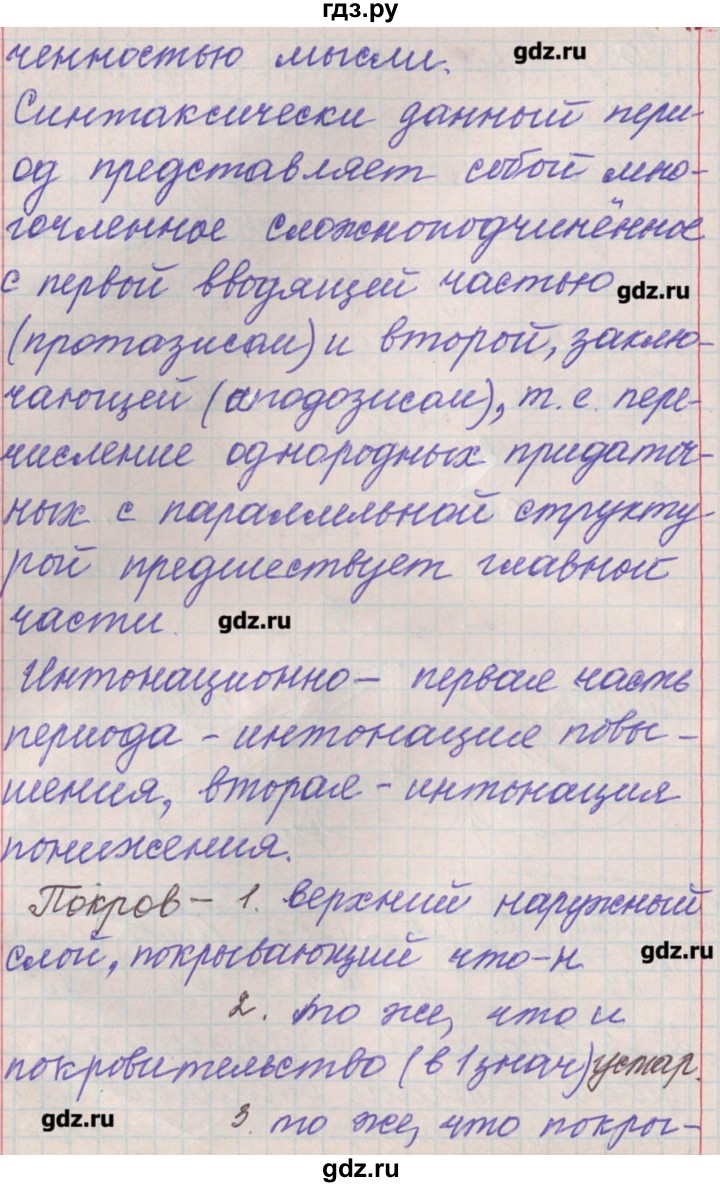 гдз.ру
ченностью мысли. gdz.ru
Синтаксически данный пери-
од представляет собой мно-
гочленное сложноподчинённое
с первой вводящей частью gdz.ru
(протазисом) и второй, заклю-
чающей (аподозисом), т. е. пере-
числение однородных придаточ-
ных с параллельной структу-
рой предшествует главной
части. gdz.ru
Интонационно – первая часть
периода – интонация повы-
шения, вторая – интонация
понижения.
Покров – 1. верхний наружный
слой, покрывающий что-н gdz.ru
2. то же, что и
покровительство (в 1 знач) устар.
gdz.ru 3. то же, что покры-
gdz.ru